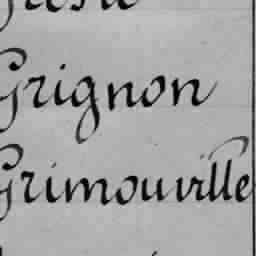 Grignon
Grimouville